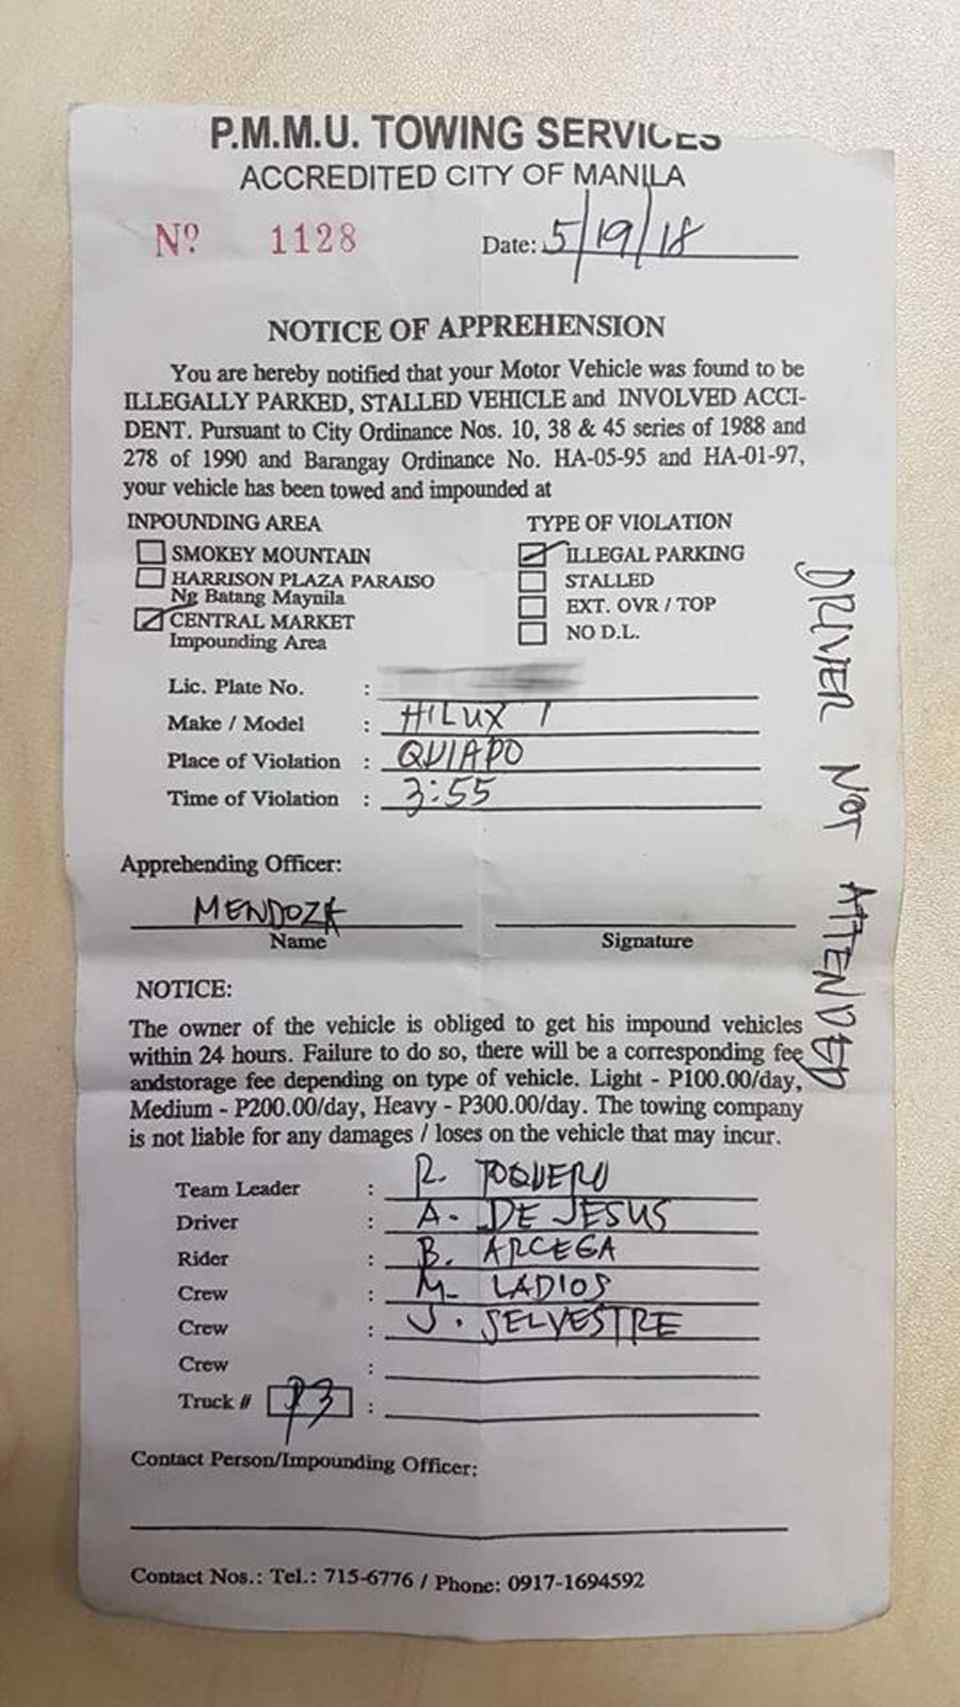 P.M.M.U. TOWING SERVICES
ACCREDITED CITY OF MANILA
Nº 1128 Date: 5/19/18
NOTICE OF APPREHENSION
You are hereby notified that your Motor Vehicle was found to be
ILLEGALLY PARKED, STALLED VEHICLE and INVOLVED ACCI-
DENT. Pursuant to City Ordinance Nos. 10, 38 & 45 series of 1988 and
278 of 1990 and Barangay Ordinance No. HA-05-95 and HA-01-97,
your vehicle has been towed and impounded at
INPOUNDING AREA
SMOKEY MOUNTAIN
HARRISON PLAZA PARAISO
Ng Batang Maynila
CENTRAL MARKET
Impounding Area
TYPE OF VIOLATION
ILLEGAL PARKING
STALLED
EXT. OVR / TOP
NO D.L.
DRIVER NOT ATTENDED
Lic. Plate No. :
Make / Model : HILUX /
Place of Violation : QUIAPO
Time of Violation : 3:55
Apprehending Officer:
MENDOZA
Name Signature
NOTICE:
The owner of the vehicle is obliged to get his impound vehicles
within 24 hours. Failure to do so, there will be a corresponding fee
andstorage fee depending on type of vehicle. Light - P100.00/day,
Medium - P200.00/day, Heavy - P300.00/day. The towing company
is not liable for any damages / loses on the vehicle that may incur.
Team Leader : R. TOQUERO
Driver : A. DE JESUS
Rider : B. ARCEGA
Crew : M. LADIOS
Crew : J. SELVESTRE
Crew :
Truck # :
Contact Person/Impounding Officer:
Contact Nos.: Tel.: 715-6776 / Phone: 0917-1694592